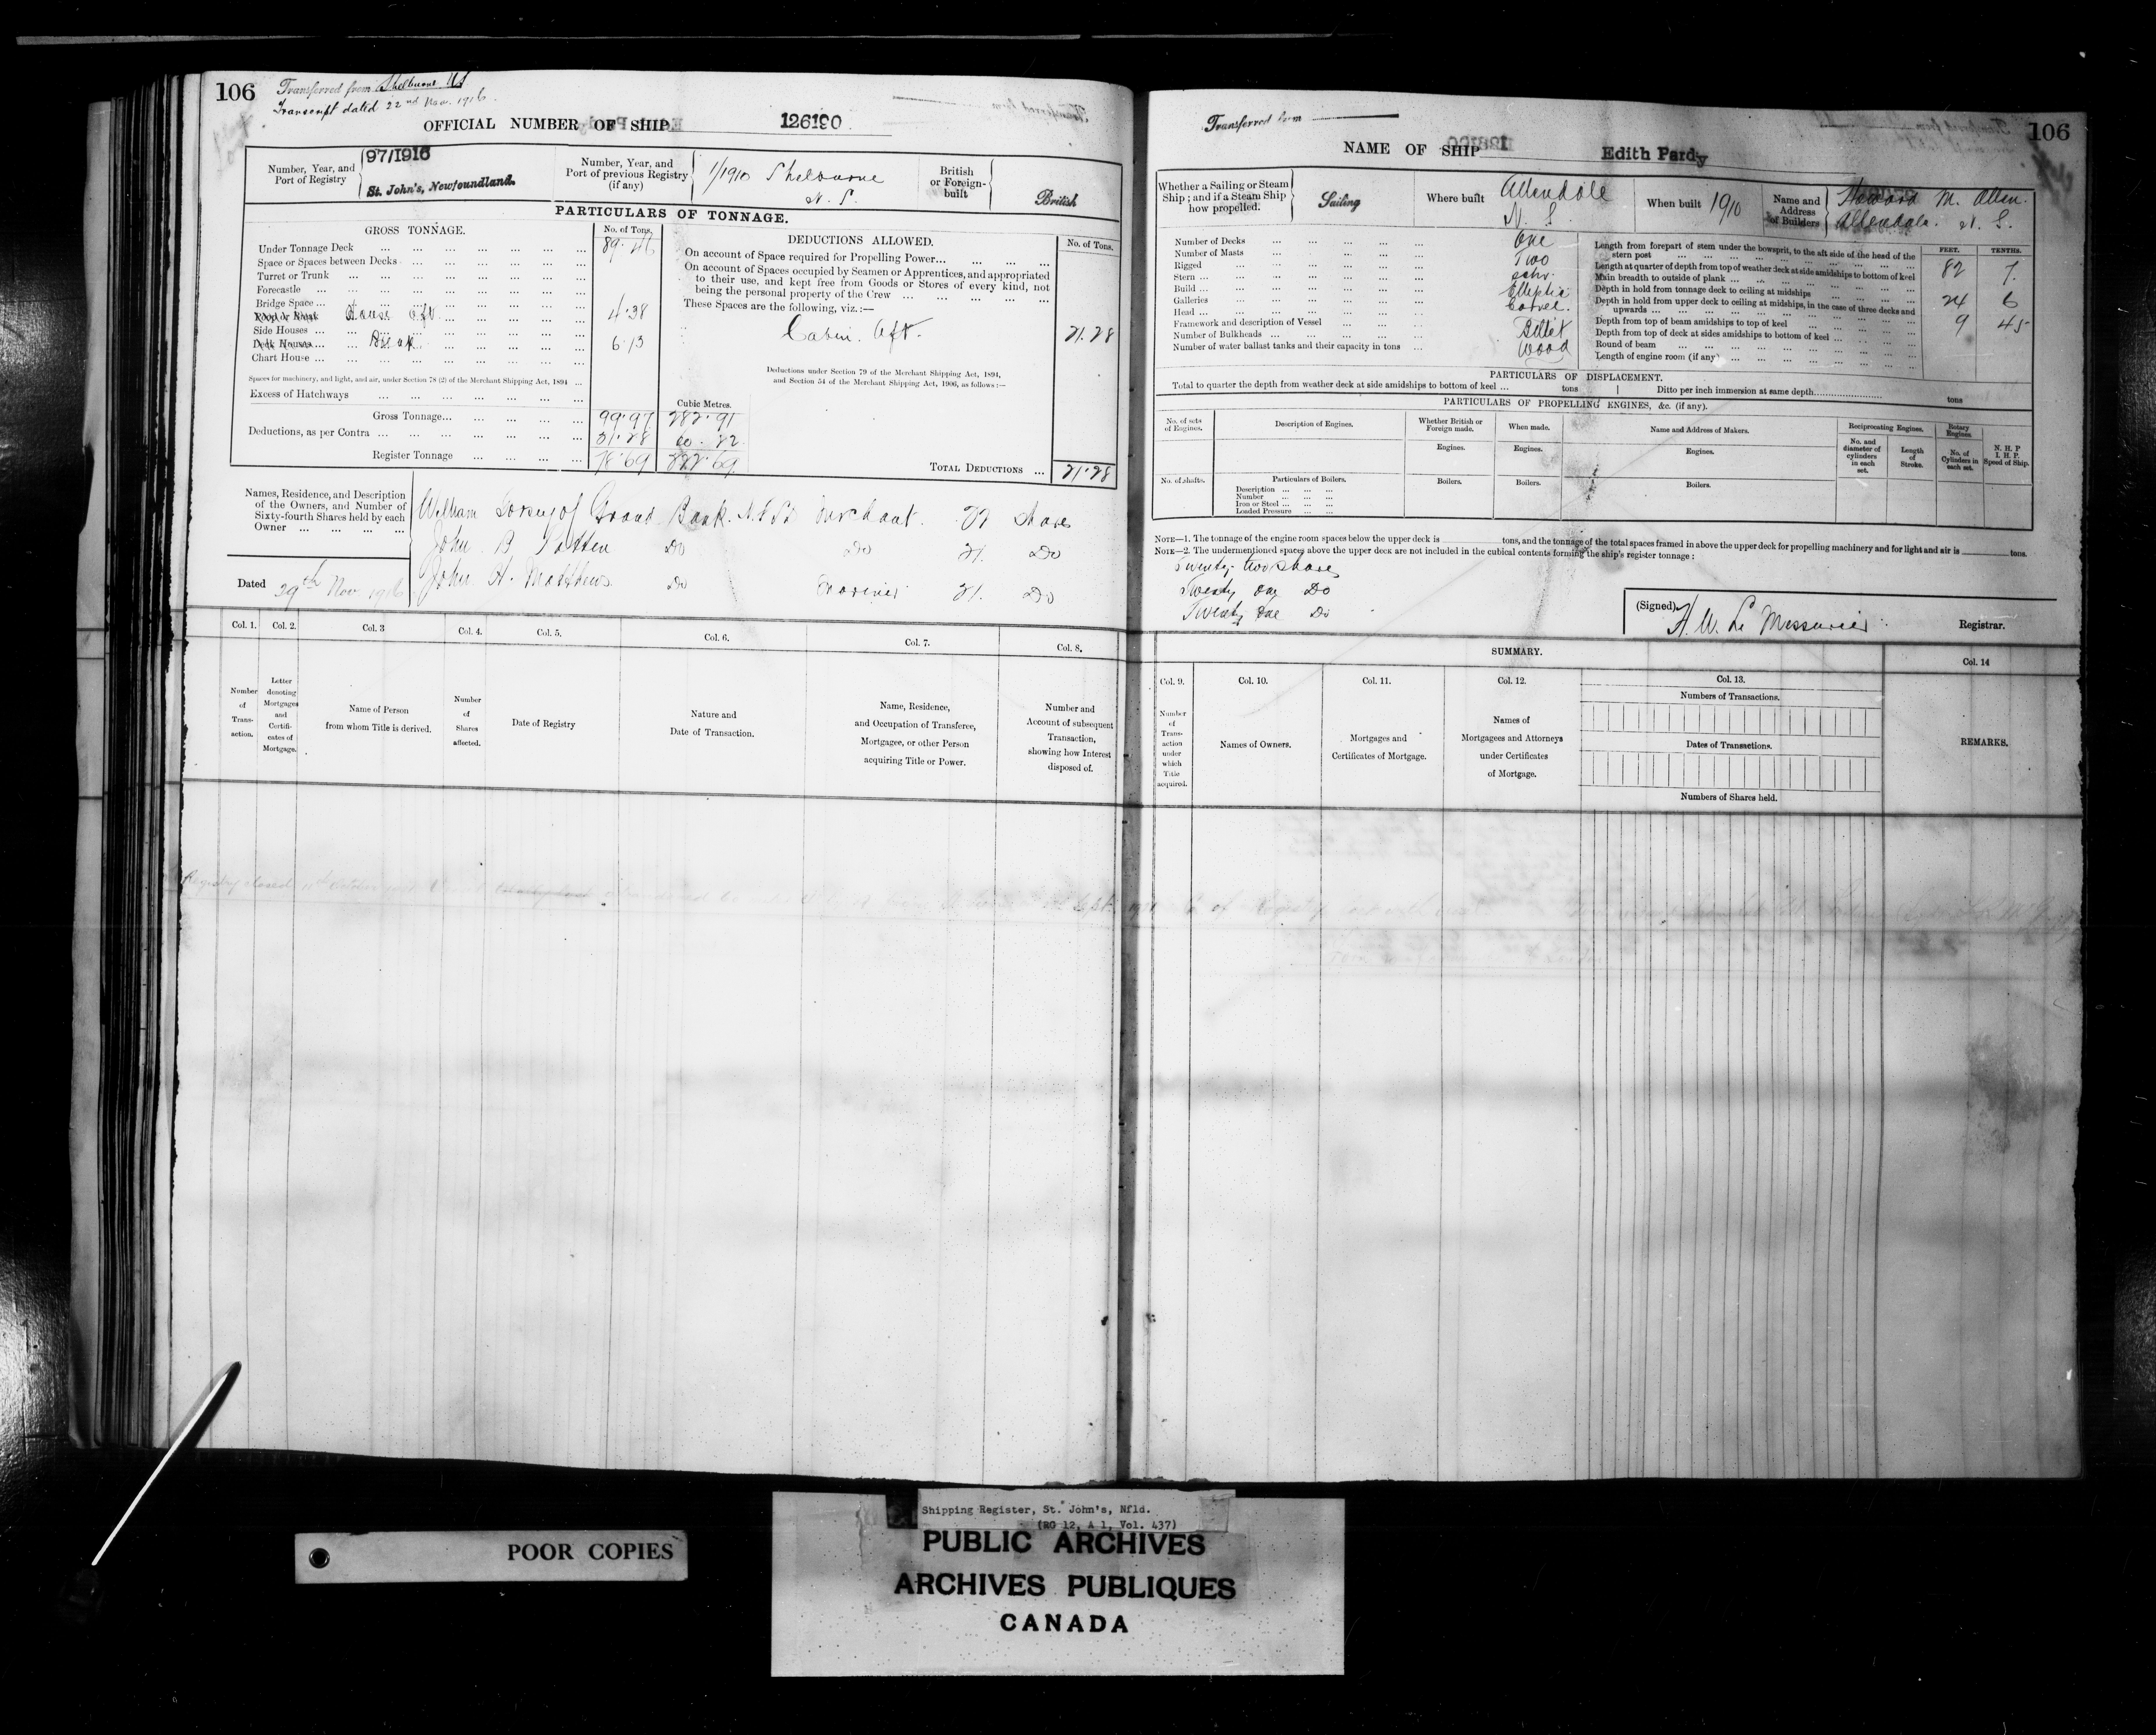 106 Transferred from Shelburne N.S
Transcript dated 22nd Nov. 1916.
OFFICIAL NUMBER OF SHIP 126190
Number, Year, and Port of Registry
97/1916
St. John's, Newfoundland.
Number, Year, and Port of previous Registry (if any)
1/1910 Shelburne
N. S.
British or Foreign-built
British
PARTICULARS OF TONNAGE.
GROSS TONNAGE. No. of Tons.
Under Tonnage Deck ... 89.46
Space or Spaces between Decks ...
Turret or Trunk ...
Forecastle ...
Bridge Space ...
Poop or Break House aft ... 4.38
Side Houses ...
Deck Houses ... Break ... 6.13
Chart House ...
Spaces for machinery, and light, and air, under Section 78 (2) of the Merchant Shipping Act, 1894 ...
Excess of Hatchways ...
Cubic Metres.
Gross Tonnage ... 99.97 282.91
Deductions, as per Contra ... 21.28 60.22
Register Tonnage ... 78.69 222.69
DEDUCTIONS ALLOWED. No. of Tons.
On account of Space required for Propelling Power ...
On account of Spaces occupied by Seamen or Apprentices, and appropriated
to their use, and kept free from Goods or Stores of every kind, not
being the personal property of the Crew ...
These Spaces are the following, viz.:—
Cabin. Aft. 21.28
Deductions under Section 79 of the Merchant Shipping Act, 1894,
and Section 54 of the Merchant Shipping Act, 1906, as follows:—
TOTAL DEDUCTIONS ... 21.28
Names, Residence, and Description
of the Owners, and Number of
Sixty-fourth Shares held by each
Owner ...
William Forsey of Grand Bank. Nfld Merchant. 22 Shares
John B Patten Do Do 21. Do
John H. Matthews Do Mariner 21. Do
Dated 29th Nov 1916
Col. 1. Col. 2. Col. 3 Col. 4. Col. 5. Col. 6. Col. 7. Col. 8.
Number of Transaction.
Letter denoting Mortgages and Certificates of Mortgage.
Name of Person from whom Title is derived.
Number of Shares affected.
Date of Registry
Nature and Date of Transaction.
Name, Residence, and Occupation of Transferee, Mortgagee, or other Person acquiring Title or Power.
Number and Account of subsequent Transaction, showing how Interest disposed of.
Registry closed
Transferred from
106
NAME OF SHIP Edith Pardy
Whether a Sailing or Steam Ship; and if a Steam Ship how propelled.
Sailing
Where built
Allendale
N. S.
When built 1910
Name and Address of Builders
Howard M. Allen.
Allendale. N. S.
Number of Decks ... One
Number of Masts ... Two
Rigged ... Schr.
Stern ... Elliptic
Build ... Carvel.
Galleries ...
Head ... Billet
Framework and description of Vessel ... Wood
Number of Bulkheads ...
Number of water ballast tanks and their capacity in tons ...
FEET. TENTHS.
Length from forepart of stem under the bowsprit, to the aft side of the head of the
stern post ... 82 7.
Length at quarter of depth from top of weather deck at side amidships to bottom of keel
Main breadth to outside of plank ... 24 6
Depth in hold from tonnage deck to ceiling at midships 9 45
Depth in hold from upper deck to ceiling at midships, in the case of three decks and
upwards ...
Depth from top of beam amidships to top of keel ...
Depth from top of deck at sides amidships to bottom of keel ...
Round of beam ...
Length of engine room (if any) ...
PARTICULARS OF DISPLACEMENT.
Total to quarter the depth from weather deck at side amidships to bottom of keel ... tons Ditto per inch immersion at same depth ... tons
PARTICULARS OF PROPELLING ENGINES, &c. (if any).
No. of sets of Engines.
Description of Engines.
Whether British or Foreign made.
When made.
Name and Address of Makers.
Reciprocating Engines.
Rotary Engines
No. and diameter of cylinders in each set.
Length of Stroke.
No. of Cylinders in each set.
N. H. P
I. H. P.
Speed of Ship.
Engines. Engines. Engines.
No. of shafts.
Particulars of Boilers.
Description ...
Number ...
Iron or Steel ...
Loaded Pressure ...
Boilers. Boilers. Boilers.
NOTE—1. The tonnage of the engine room spaces below the upper deck is tons, and the tonnage of the total spaces framed in above the upper deck for propelling machinery and for light and air is tons.
NOTE—2. The undermentioned spaces above the upper deck are not included in the cubical contents forming the ship's register tonnage:
Twenty two Shares
Twenty one Do
Twenty one Do
(Signed) H. W. Le Messurier Registrar.
SUMMARY.
Col. 9. Col. 10. Col. 11. Col. 12. Col. 13. Col. 14
Number of Transaction under which Title acquired.
Names of Owners.
Mortgages and Certificates of Mortgage.
Names of Mortgagees and Attorneys under Certificates of Mortgage.
Numbers of Transactions.
Dates of Transactions.
Numbers of Shares held.
REMARKS.
POOR COPIES
Shipping Register, St. John's, Nfld.
(RG 12, A 1, Vol. 437)
PUBLIC ARCHIVES
ARCHIVES PUBLIQUES
CANADA